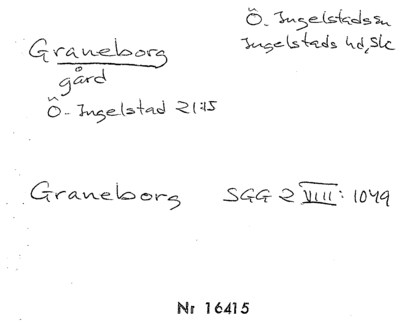 Graneborg
gård
Ö. Ingelstad 21:15
Ö. Ingelstads sn
Ingelstads hd, Sk
Graneborg SGG 2 VIII: 1049
Nr 16415